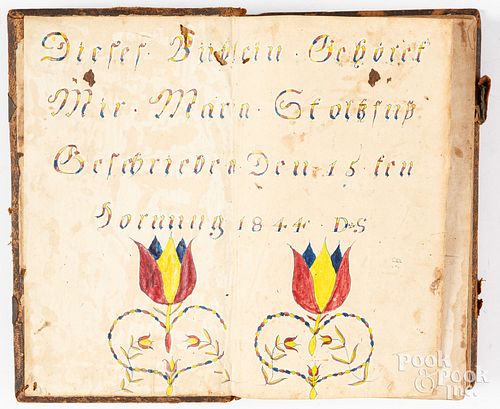 Dieses Büchlein Gehöret
Mir Mara Stoltzfuß
Geschrieben Den 15 ten
Hornung 1844 DS
POOK
& POOK
INC